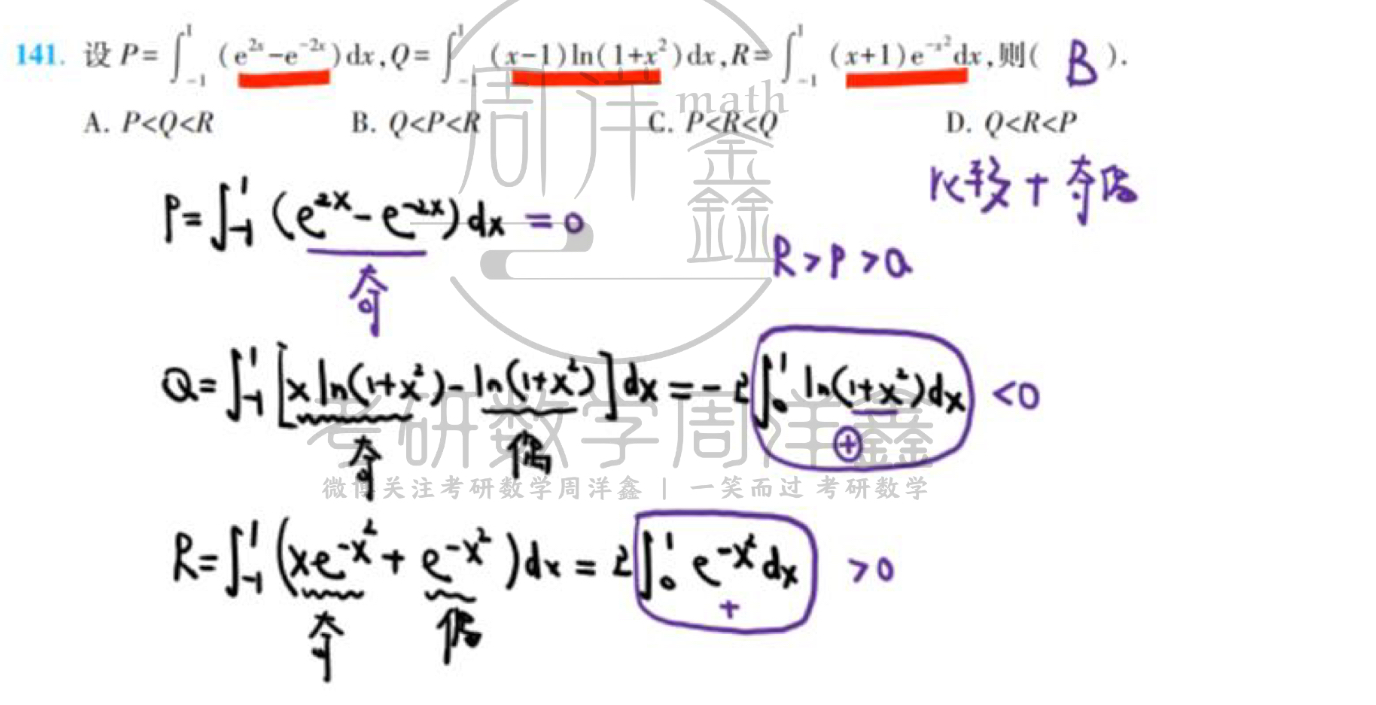 141. 设 P=∫₋₁¹(e²ˣ-e⁻²ˣ)dx,Q=∫₋₁¹(x-1)ln(1+x²)dx,R=∫₋₁¹(x+1)e^{-x²}dx,则( B ).
A. P<Q<R B. Q<P<R C. P<R<Q D. Q<R<P
比较+奇偶
P=∫₋₁¹(e²ˣ-e⁻²ˣ)dx=0
奇
R>P>Q
Q=∫₋₁¹[xln(1+x²)-ln(1+x²)]dx=-2∫₀¹ln(1+x²)dx<0
奇 偶 +
R=∫₋₁¹(xe^{-x²}+e^{-x²})dx=2∫₀¹e^{-x²}dx>0
奇 偶 +
周洋鑫
math
考研数学周洋鑫
微博关注考研数学周洋鑫 | 一笑而过 考研数学